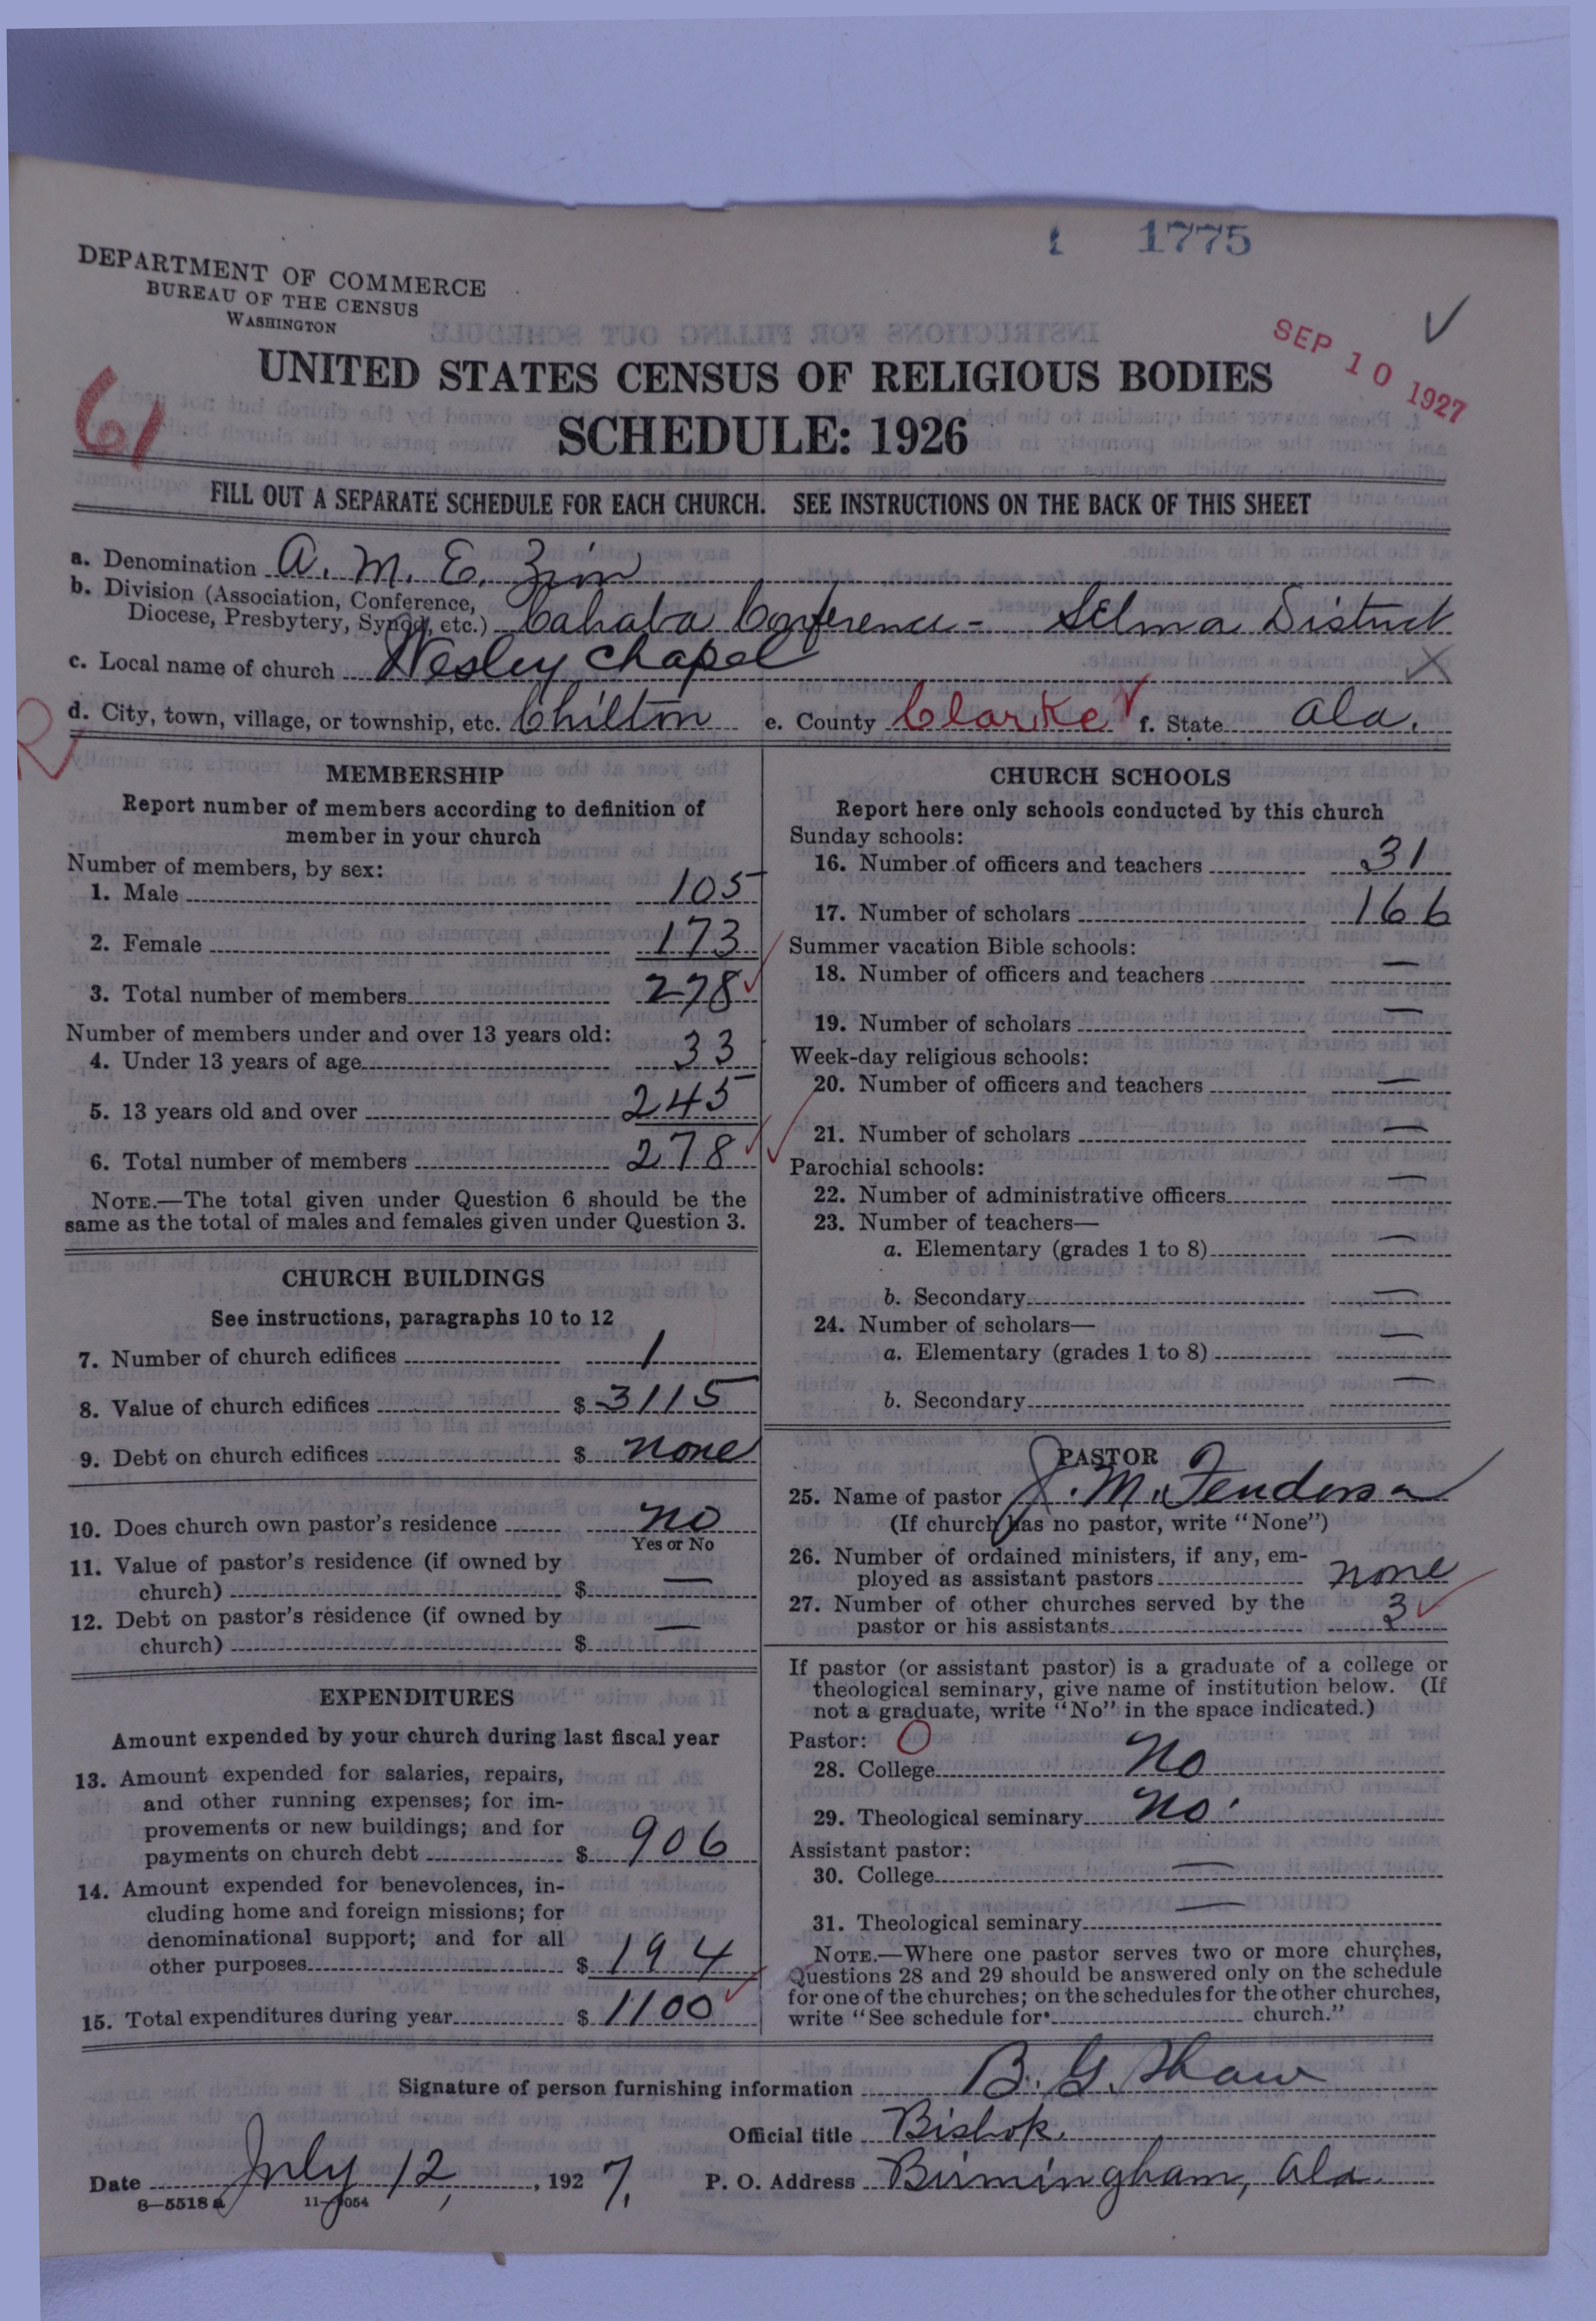 1 1775
DEPARTMENT OF COMMERCE
BUREAU OF THE CENSUS
WASHINGTON
SEP 10 1927
UNITED STATES CENSUS OF RELIGIOUS BODIES
61
SCHEDULE: 1926
FILL OUT A SEPARATE SCHEDULE FOR EACH CHURCH. SEE INSTRUCTIONS ON THE BACK OF THIS SHEET
a. Denomination A. M. E. Zion
b. Division (Association, Conference,
Diocese, Presbytery, Synod, etc.) Cahaba Conference - Selma District
c. Local name of church Wesley Chapel
d. City, town, village, or township, etc. Chilton e. County Clarke f. State Ala.
R
MEMBERSHIP
Report number of members according to definition of
member in your church
Number of members, by sex:
1. Male 105
2. Female 173
3. Total number of members 278
Number of members under and over 13 years old:
4. Under 13 years of age 33
5. 13 years old and over 245
6. Total number of members 278
NOTE.—The total given under Question 6 should be the
same as the total of males and females given under Question 3.
CHURCH BUILDINGS
See instructions, paragraphs 10 to 12
7. Number of church edifices 1
8. Value of church edifices $ 3115
9. Debt on church edifices $ none
10. Does church own pastor's residence no
Yes or No
11. Value of pastor's residence (if owned by
church) $ —
12. Debt on pastor's residence (if owned by
church) $ —
EXPENDITURES
Amount expended by your church during last fiscal year
13. Amount expended for salaries, repairs,
and other running expenses; for im-
provements or new buildings; and for
payments on church debt $ 906
14. Amount expended for benevolences, in-
cluding home and foreign missions; for
denominational support; and for all
other purposes $ 194
15. Total expenditures during year $ 1100
CHURCH SCHOOLS
Report here only schools conducted by this church
Sunday schools:
16. Number of officers and teachers 31
17. Number of scholars 166
Summer vacation Bible schools:
18. Number of officers and teachers —
19. Number of scholars —
Week-day religious schools:
20. Number of officers and teachers —
21. Number of scholars —
Parochial schools:
22. Number of administrative officers —
23. Number of teachers—
a. Elementary (grades 1 to 8) —
b. Secondary —
24. Number of scholars—
a. Elementary (grades 1 to 8) —
b. Secondary —
PASTOR
25. Name of pastor J. M.
(If church has no pastor, write "None")
26. Number of ordained ministers, if any, em-
ployed as assistant pastors none
27. Number of other churches served by the
pastor or his assistants 3
If pastor (or assistant pastor) is a graduate of a college or
theological seminary, give name of institution below. (If
not a graduate, write "No" in the space indicated.)
Pastor: O
28. College No
29. Theological seminary No.
Assistant pastor:
30. College —
31. Theological seminary —
NOTE.—Where one pastor serves two or more churches,
Questions 28 and 29 should be answered only on the schedule
for one of the churches; on the schedules for the other churches,
write "See schedule for church."
Signature of person furnishing information B. G. Shaw
Official title Bishop.
Date July 12, 1927. P. O. Address Birmingham, Ala.
8—5518 a 11—9054